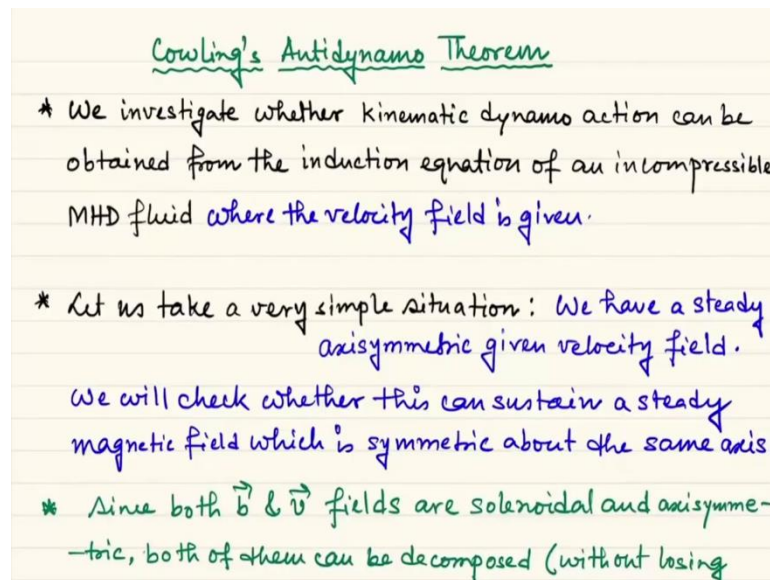 Cowling's Antidynamo Theorem
* We investigate whether kinematic dynamo action can be
obtained from the induction equation of an incompressible
MHD fluid where the velocity field is given.
* Let us take a very simple situation: We have a steady
axisymmetric given velocity field.
We will check whether this can sustain a steady
magnetic field which is symmetric about the same axis
* Since both b⃗ & v⃗ fields are solenoidal and axisymme-
-tric, both of them can be decomposed (without losing